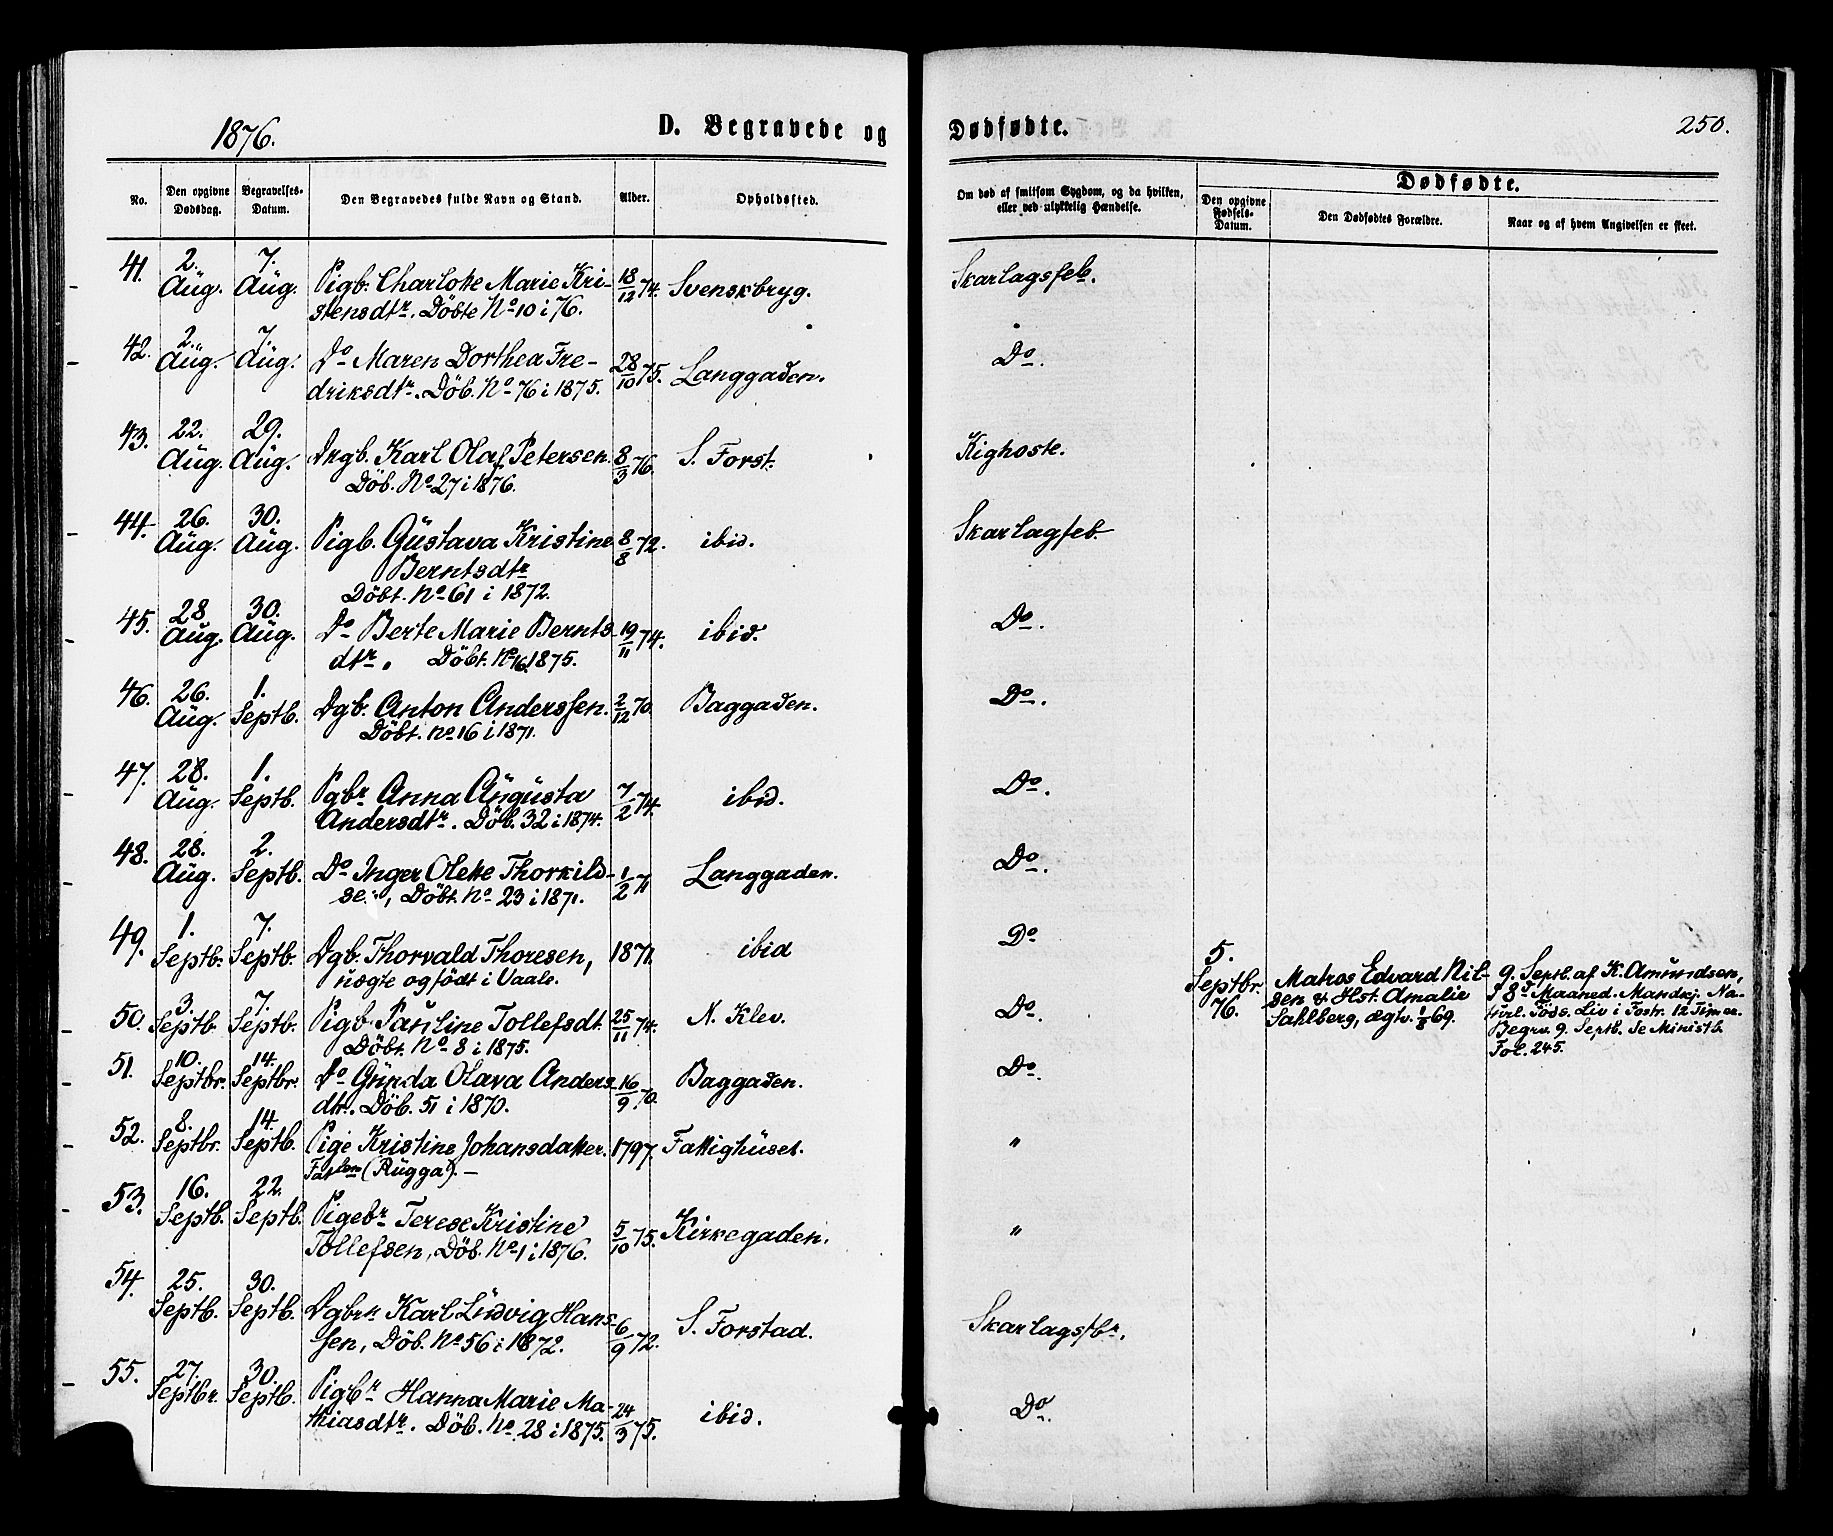 1876.
D. Begravede og
Dødfødte.
250.
No.
Den opgivne Dødsdag.
Begravelses-Datum.
Den Begravedes fulde Navn og Stand.
Alder.
Opholdssted.
Om død af smitsom Sygdom, og da hvilken,
eller ved ulykkelig Hændelse.
Dødfødte.
Den opgivne Fødsels-Datum.
Den Dødfødtes Forældre.
Naar og af hvem Angivelsen er skeet.
41. 2. Aug. 7. Aug. Pigb. Charlotte Marie Kri- 18/12 74. Svenskbryg. Skarlagsfeb.
stensdtr. Döbte No 10 i 76.
42. 2. Aug. 7. Aug. Do Maren Dorthea Fre- 28/10 75. Langgaden. Do.
driksdtr. Döb. No 76 i 1875.
43. 22. Aug. 29. Aug. Drgb. Karl Olaf Petersen 8/3 76. S. Forst. Kighoste.
Döb. No 27 i 1876.
44. 26. Aug. 30. Aug. Pigb. Gustava Kristine 8/8 72. ibid. Skarlagfeb.
Berntsdtr
Döbt. No 61 i 1872.
45. 28. Aug. 30. Aug. Do Berte Marie Bernts- 19/11 74. ibid. Do.
dtr. Döbt. No 16 1875.
46. 26. Aug. 1. Septb. Dgb. Anton Anderssen. 2/12 70 Baggaden. Do.
Döbt. No 16 i 1871.
47. 28. Aug. 1. Septb. Pgbr Anna Augusta 7/2 74. ibid. Do.
Andersdtr. Döb. 32 i 1874.
48. 28. Aug. 2. Septb. Do Inger Olette Thorkild- 1/2 71 Langgaden. Do.
sen, Döbt. No 23 i 1871.
49. 1. Septb. 7. Septb. Dgb. Thorvald Thoresen, 1871. ibid Do
uægte og födt i Vaale.
50. 3. Septb. 7. Septb. Pigb. Pauline Tollefsdt. 25/11 74. N. Klev. Do.
Döbt. No 8 i 1875.
51. 10. Septbr. 14. Septbr. Do Gunda Olava Anders- 16/9 70. Baggaden. Do.
dtr. Döb. 51 i 1870.
52. 8. Septbr. 14. Septb. Pige Kristine Johansdatter. 1797. Fattighuset. "
Fatlem (Rugga). —
53. 16. Septb. 22. Septb. Pigebr Terese Kristine 5/10 75. Kirkegaden. "
Tollefsen, Döb. No 1 i 1876.
54. 25. Septb. 30. Septb. Dgbrn Karl Ludvig Hans- 6/9 72. S. Forstad. Skarlagsfbr.
sen, Döb. No 56 i 1872.
55. 27. Septbr. 30. Septb. Pigbr Hanna Marie Ma- 24/3 75. ibid. Do.
thiasdtr. Döb. No 28 i 1875.
5. Septbr. 76.
Matros Edvard Nil-
sen & Hst. Amalie
Sahlberg, ægtv. 1/8 69.
9. Septb. af K. Amundsen,
I 8d Maaned. Mandkj. Na-
turl. Föds. Liv i Fostr. 12 Timer.
Begrv. 9. Septb. Se Ministb.
Fol. 245.